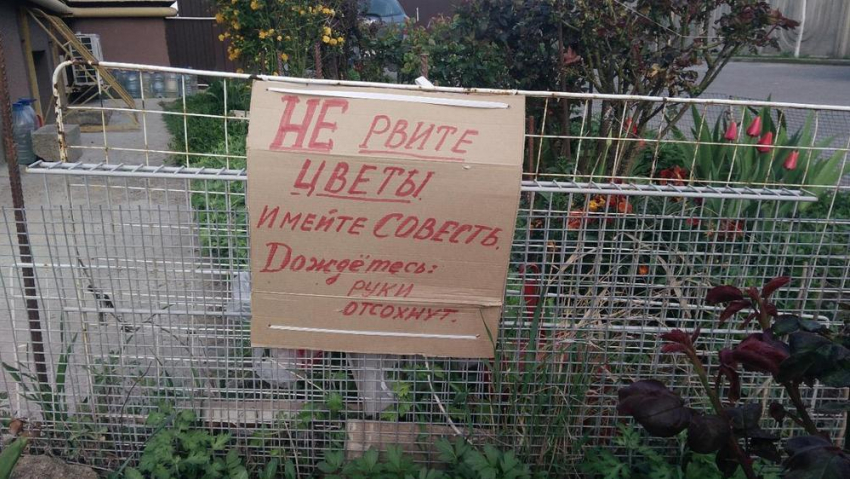 НЕ РВИТЕ
ЦВЕТЫ
ИМЕЙТЕ СОВЕСТЬ.
Дождётесь:
РУКИ
ОТСОХНУТ.